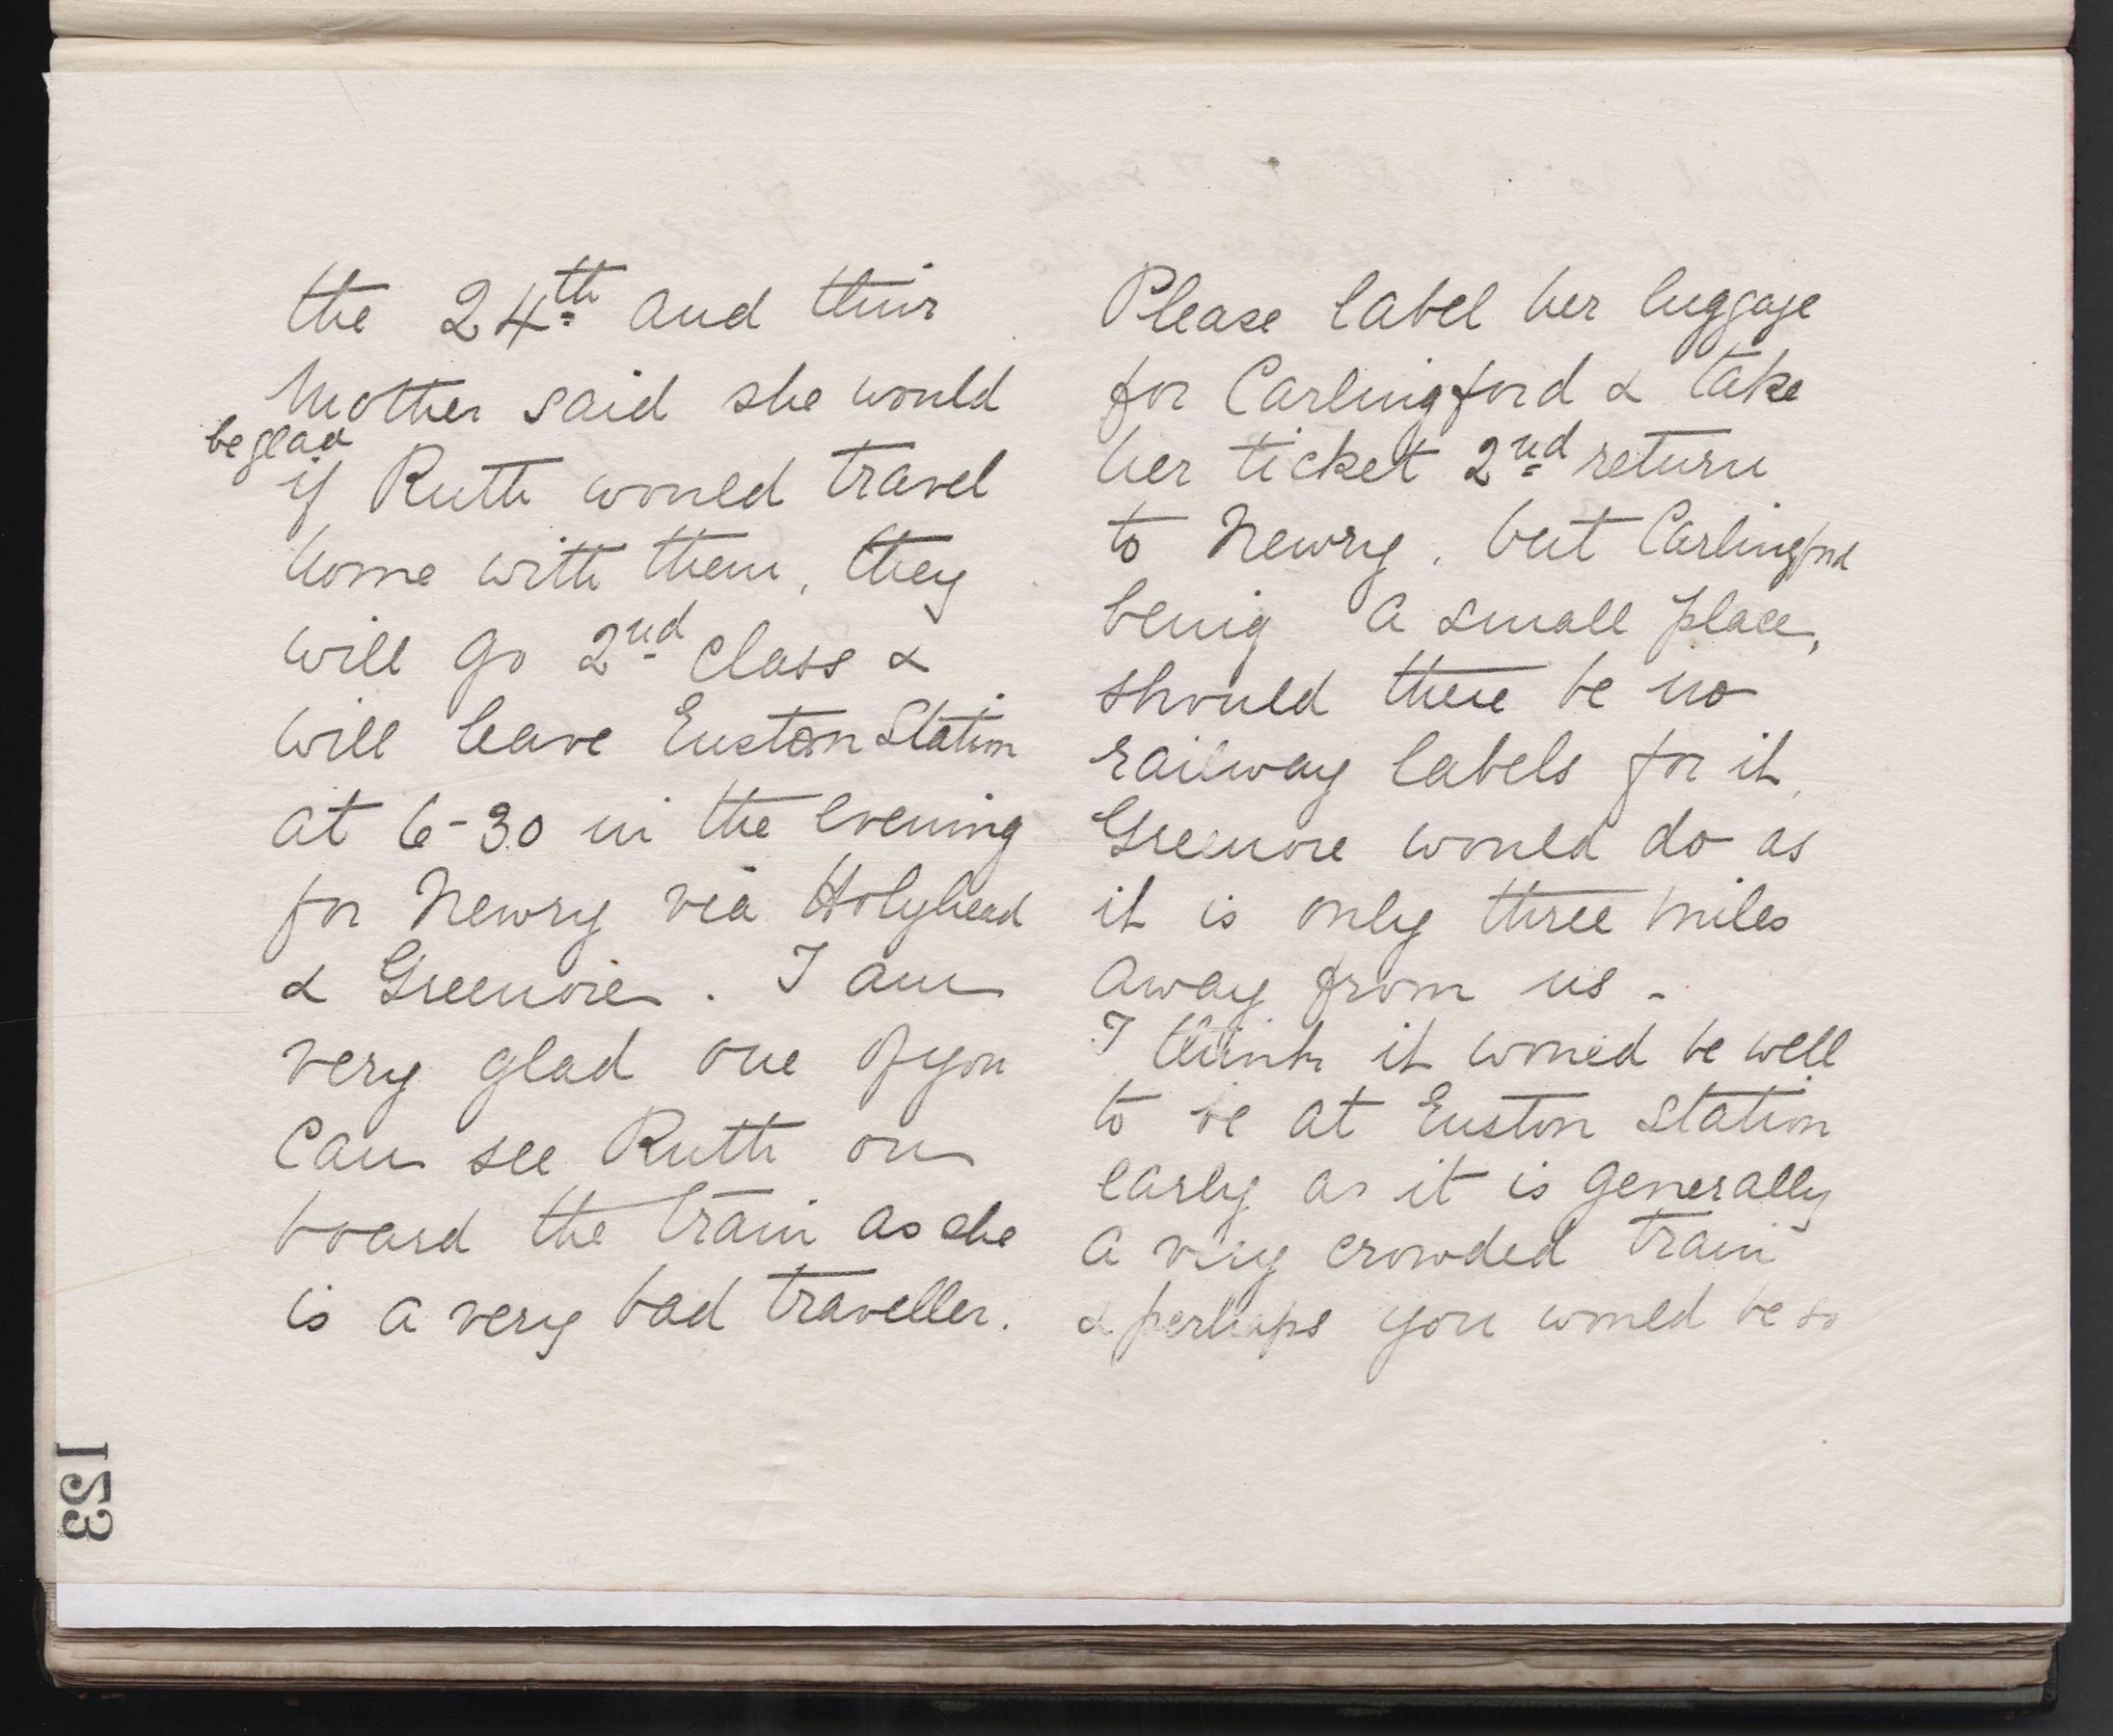 the 24th and their
Mother said she would
be glad
if Ruth would travel
home with them, they
will go 2nd class &
will leave Euston Station
at 6-30 in the evening
for Newry via Holyhead
& Greenore. I am
very glad one of you
can see Ruth on
board the train as she
is a very bad traveller.
Please label her luggage
for Carlingford & take
her ticket 2nd return
to Newry, but Carlingford
being a small place,
should there be no
railway labels for it,
Greenore would do as
it is only three miles
away from us -
I think it would be well
to be at Euston Station
early as it is generally
a very crowded train
& perhaps you would be so
123